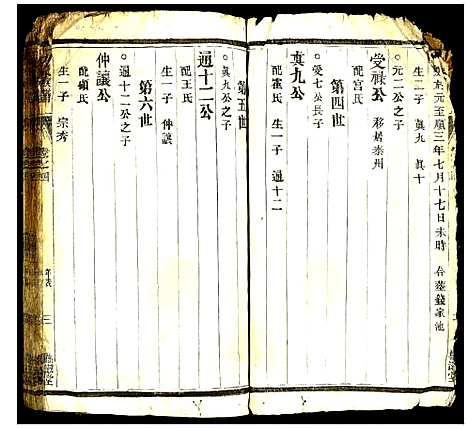 元至順三年七月十七日未時
生二子 真九 真十
元二公之子
受祿公 移居泰州
配宮氏
第四世
受七公長子
真九公
配崔氏 生一子 通十二
第五世
真九公之子
通十二公
配王氏
生一子 仲讓
第六世
通十二公之子
仲讓公
配顧氏
生一子 宗秀